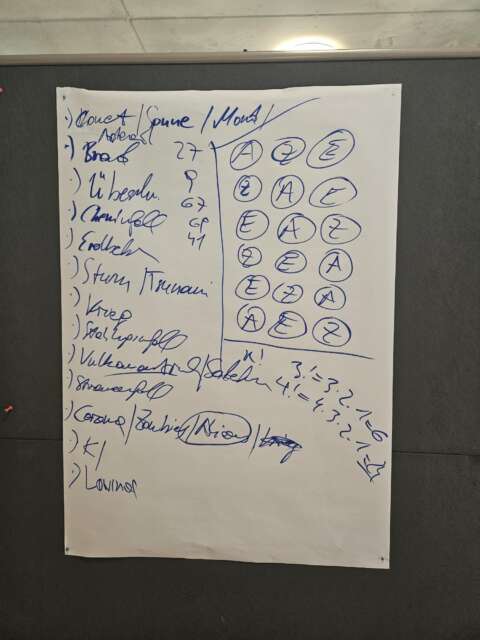 ·) Comet / Sonne / Mond /
·) Brand 27
·) Übersch. 9
67
·) Chemiunfall 69
·) Erdbeben 41
·) Sturm / Tsunami
·) Krieg
·) Strahlenunfall
·) Vulkanausbruch /
·) Stromausfall
·) Corona / Zombies / Aliens /
·) KI
·) Lawinen
A Z E
Z A E
E A Z
Z E A
E Z A
A E Z
n!
3! = 3·2·1 = 6
4! = 4·3·2·1 = 24